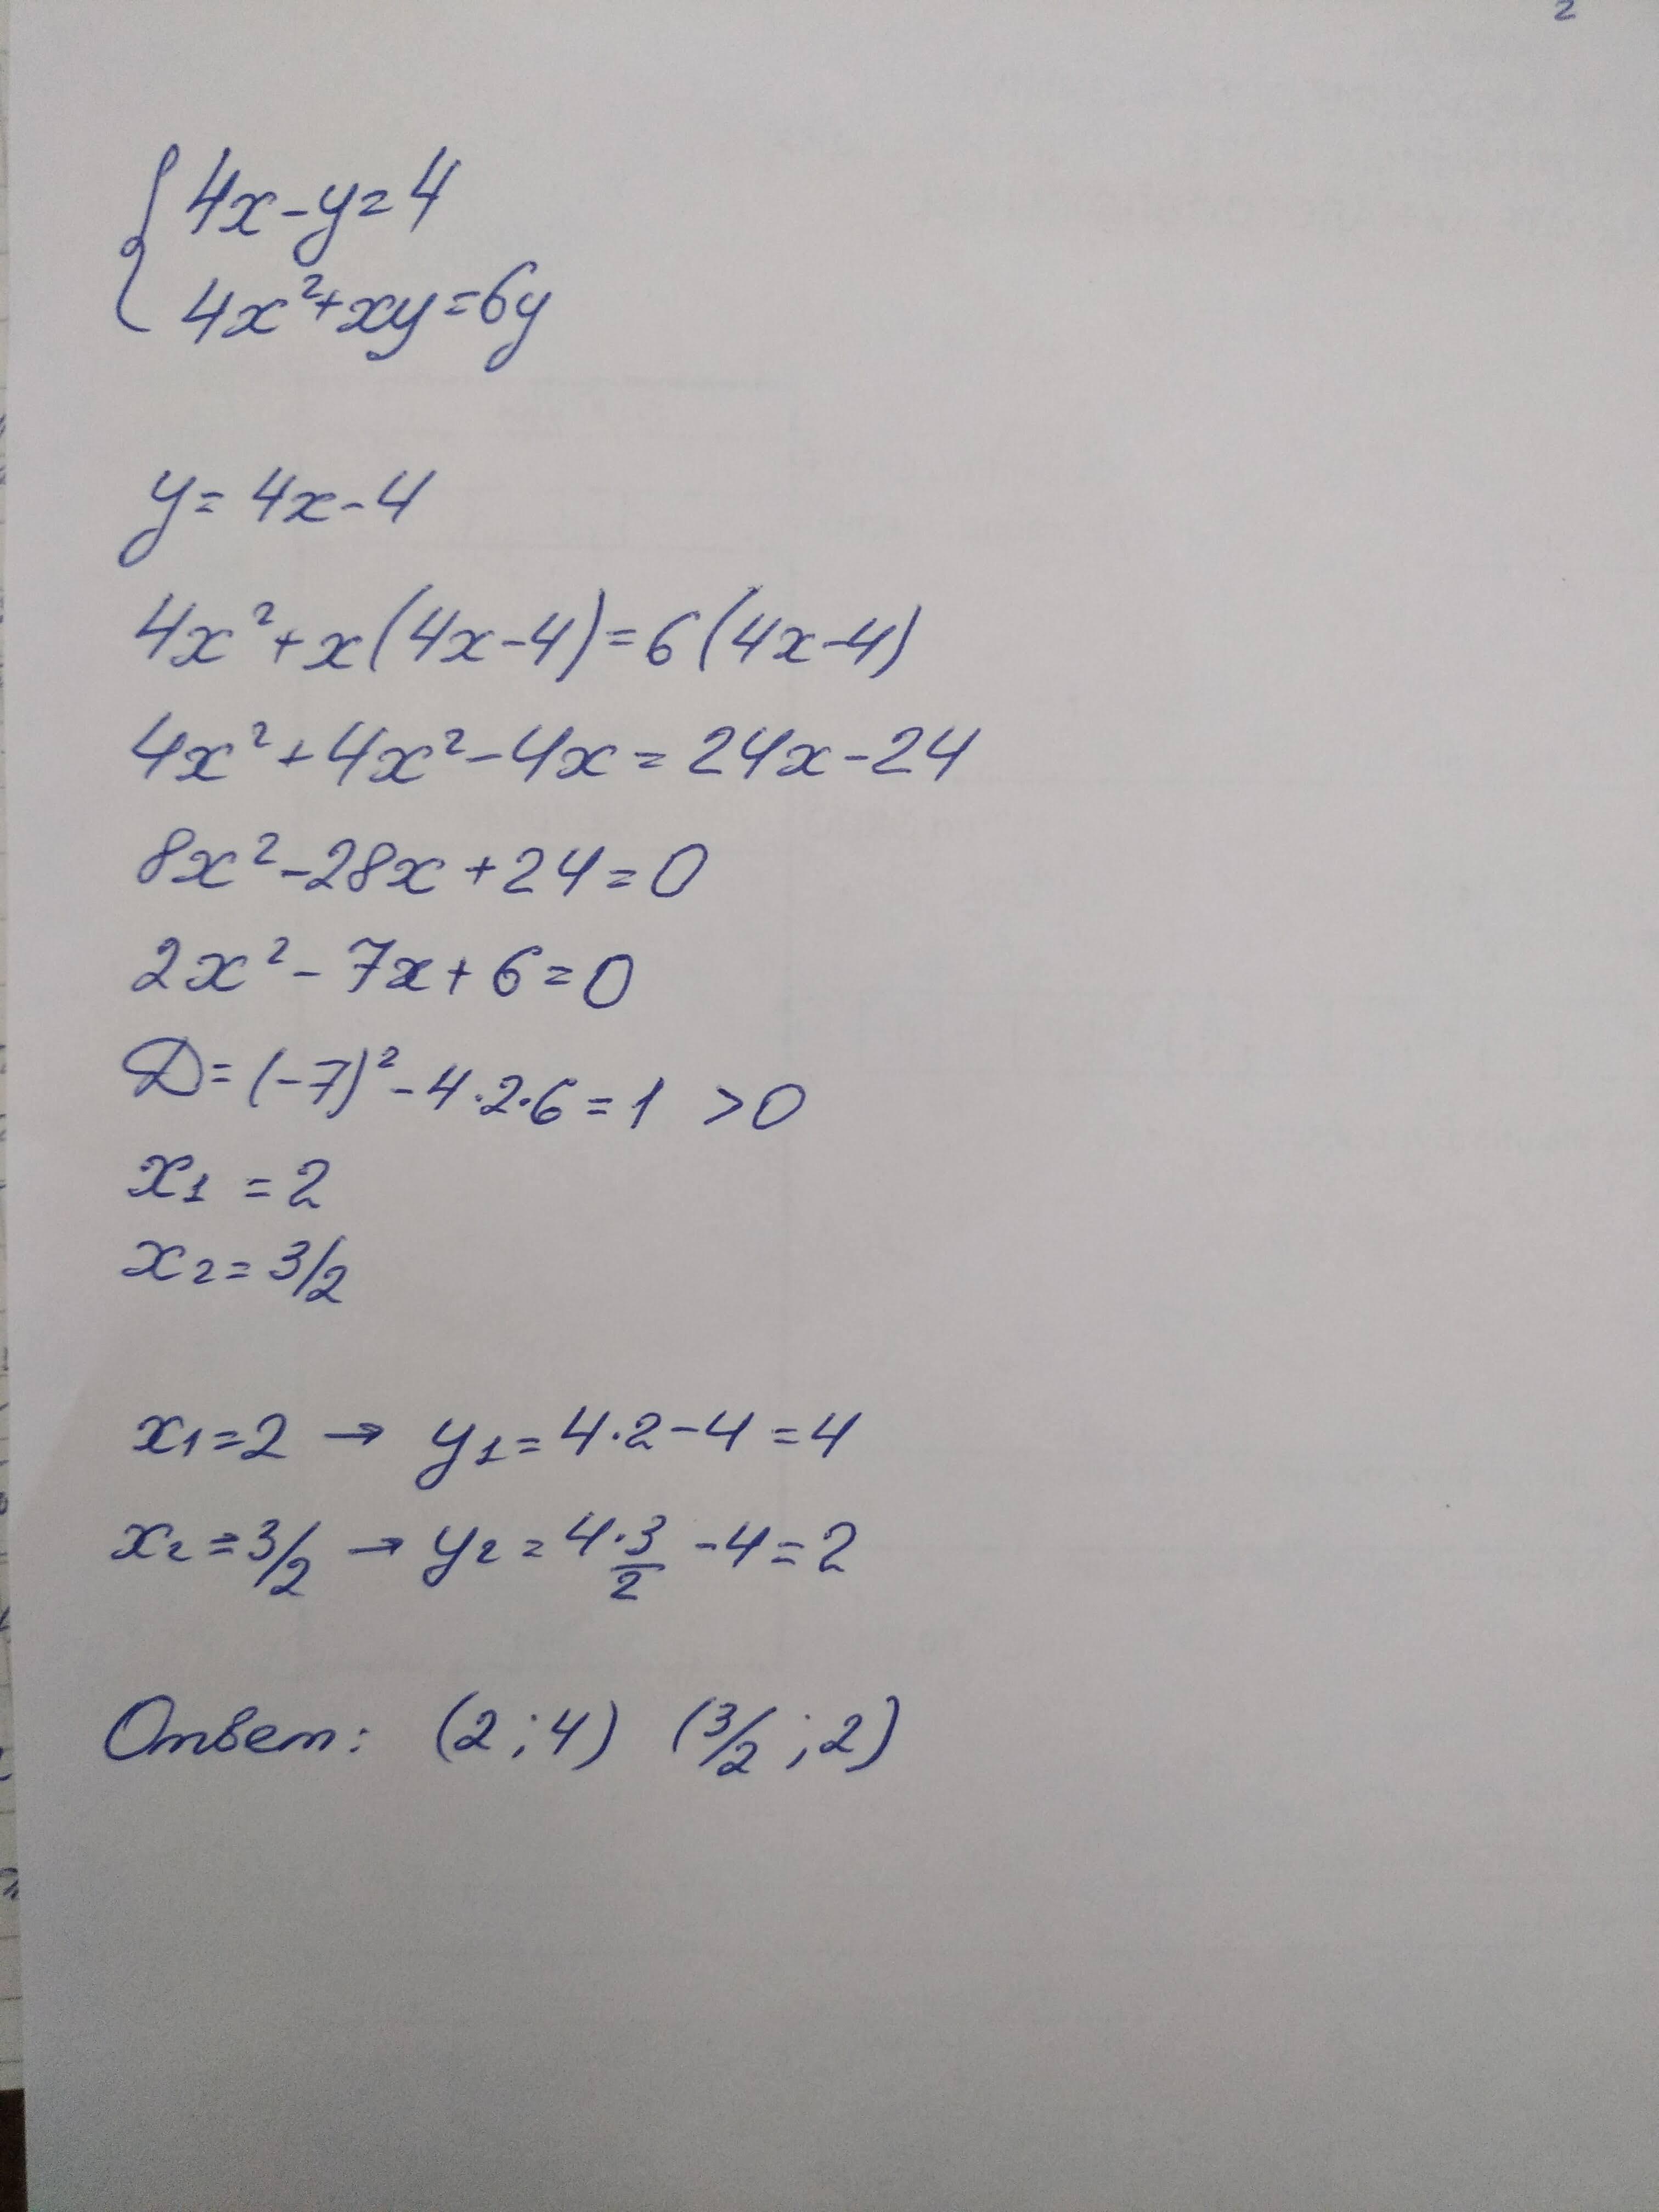 2
4x-y=4
4x²+xy=6y
y=4x-4
4x²+x(4x-4)=6(4x-4)
4x²+4x²-4x=24x-24
8x²-28x+24=0
2x²-7x+6=0
D=(-7)²-4·2·6=1 >0
x₁=2
x₂=3/2
x₁=2 → y₁=4·2-4=4
x₂=3/2 → y₂=4·3/2-4=2
Ответ: (2;4) (3/2;2)